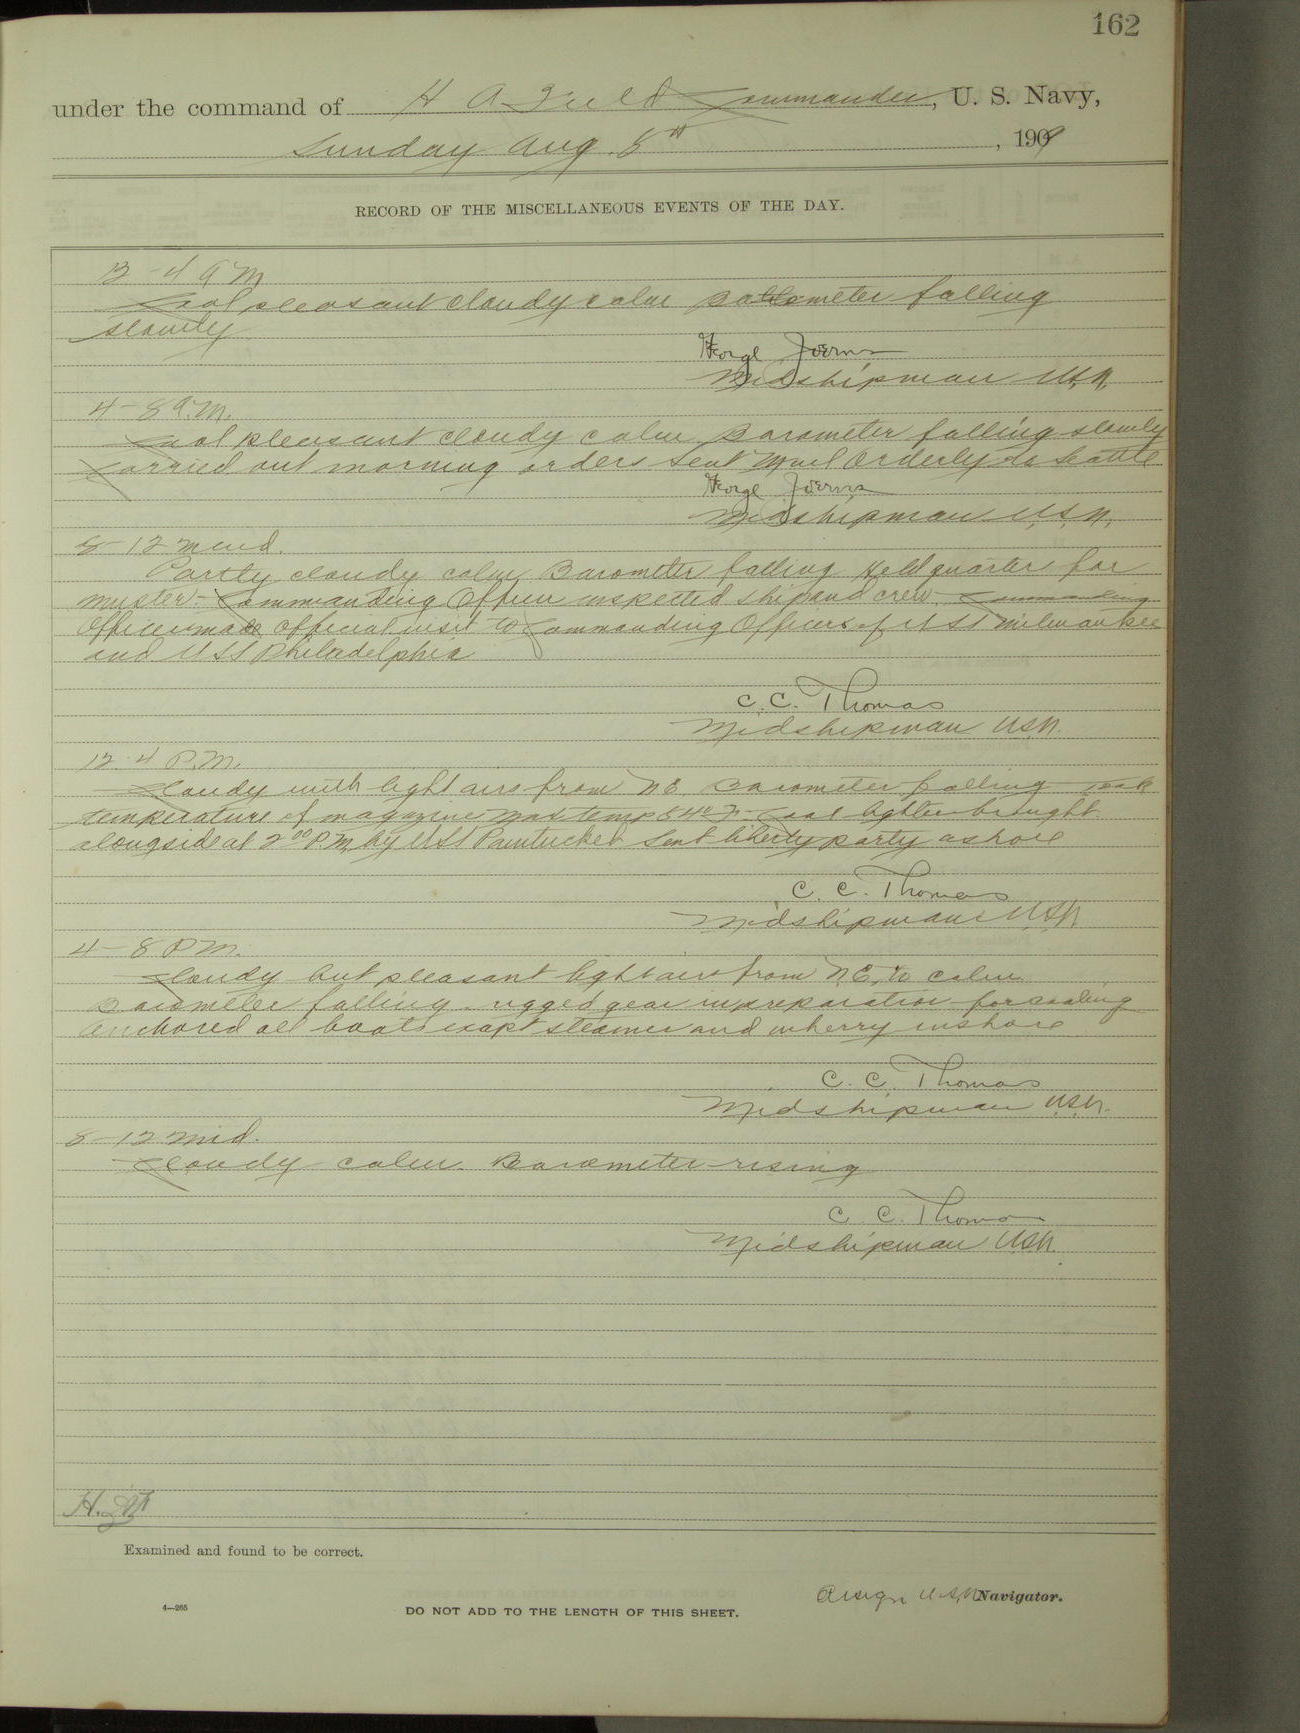 162
under the command of H A Field Commander, U. S. Navy,
Sunday Aug. 8th, 1909
RECORD OF THE MISCELLANEOUS EVENTS OF THE DAY.
12-4 A M
Cool pleasant cloudy calm Barometer falling
slowly
George Joerns
Midshipman U.S.N.
4-8 A.M.
Cool pleasant cloudy calm Barometer falling slowly
Carried out morning orders sent Mail Orderly to Seattle
George Joerns
Midshipman U.S.N.
8-12 Merid.
Partly cloudy calm Barometer falling Held quarters for
muster - Commanding Officer inspected ship and crew. Commanding
Officer made official visit to Commanding Officers of USS Milwaukee
and USS Philadelphia
C. C. Thomas
Midshipman USN.
12-4 P.M.
Cloudy with light airs from NE Barometer falling took
temperature of magazine Max temp 84° F. Coal lighter brought
alongside at 2 00 P M, by USS Pawtucket Sent liberty party ashore
C. C. Thomas
Midshipman USN
4-8 P M.
Cloudy but pleasant light airs from N.E. to calm
Barometer falling. rigged gear in preparation for coaling
Anchored all boats except steamer and wherry inshore
C. C. Thomas
Midshipman U.S.N.
8-12 Mid.
Cloudy calm. Barometer rising
C. C. Thomas
Midshipman USN.
Examined and found to be correct.
Ensign U.S.N. Navigator.
4—265
DO NOT ADD TO THE LENGTH OF THIS SHEET.